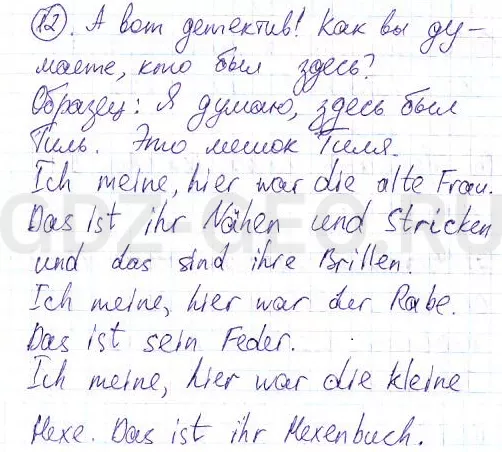 12. А вот детектив! Как вы ду-
маете, кто был здесь?
Образец: Я думаю, здесь был
Тиль. Это мешок Тиля.
Ich meine, hier war die alte Frau.
Das ist ihr Nähen und Stricken
und das sind ihre Brillen.
Ich meine, hier war der Rabe.
Das ist sein Feder.
Ich meine, hier war die kleine
Hexe. Das ist ihr Hexenbuch.